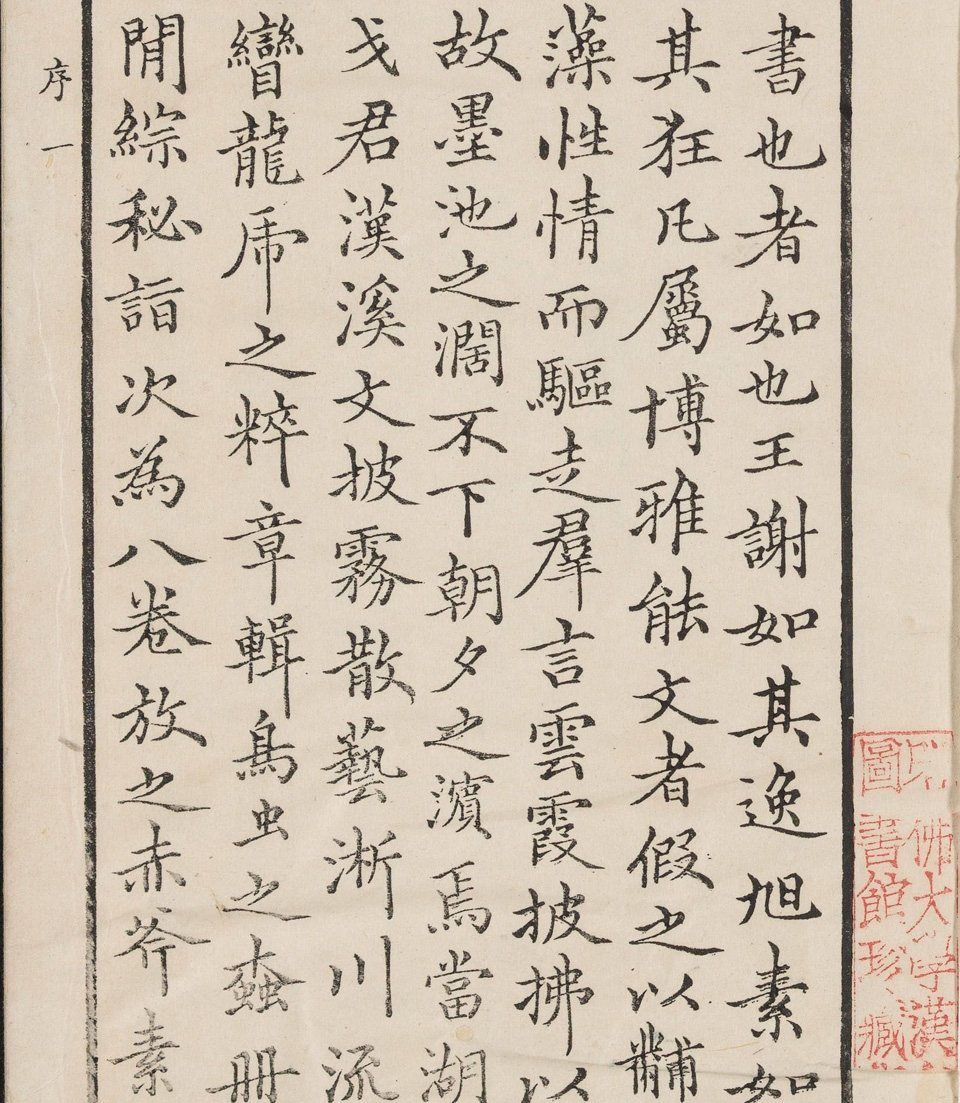 書也者如也王謝如其逸旭素如
其狂凡屬博雅能文者假之以黼
藻性情而驅走羣言雲霞披拂以
故墨池之濶不下朝夕之濵焉當湖
戈君漢溪文披霧散藝淅川流
龍席之粹章輯鳥虫之
冊
閒綜秘詣次為八卷放之赤斧素
序 一
佛大學漢
圖書館珍藏